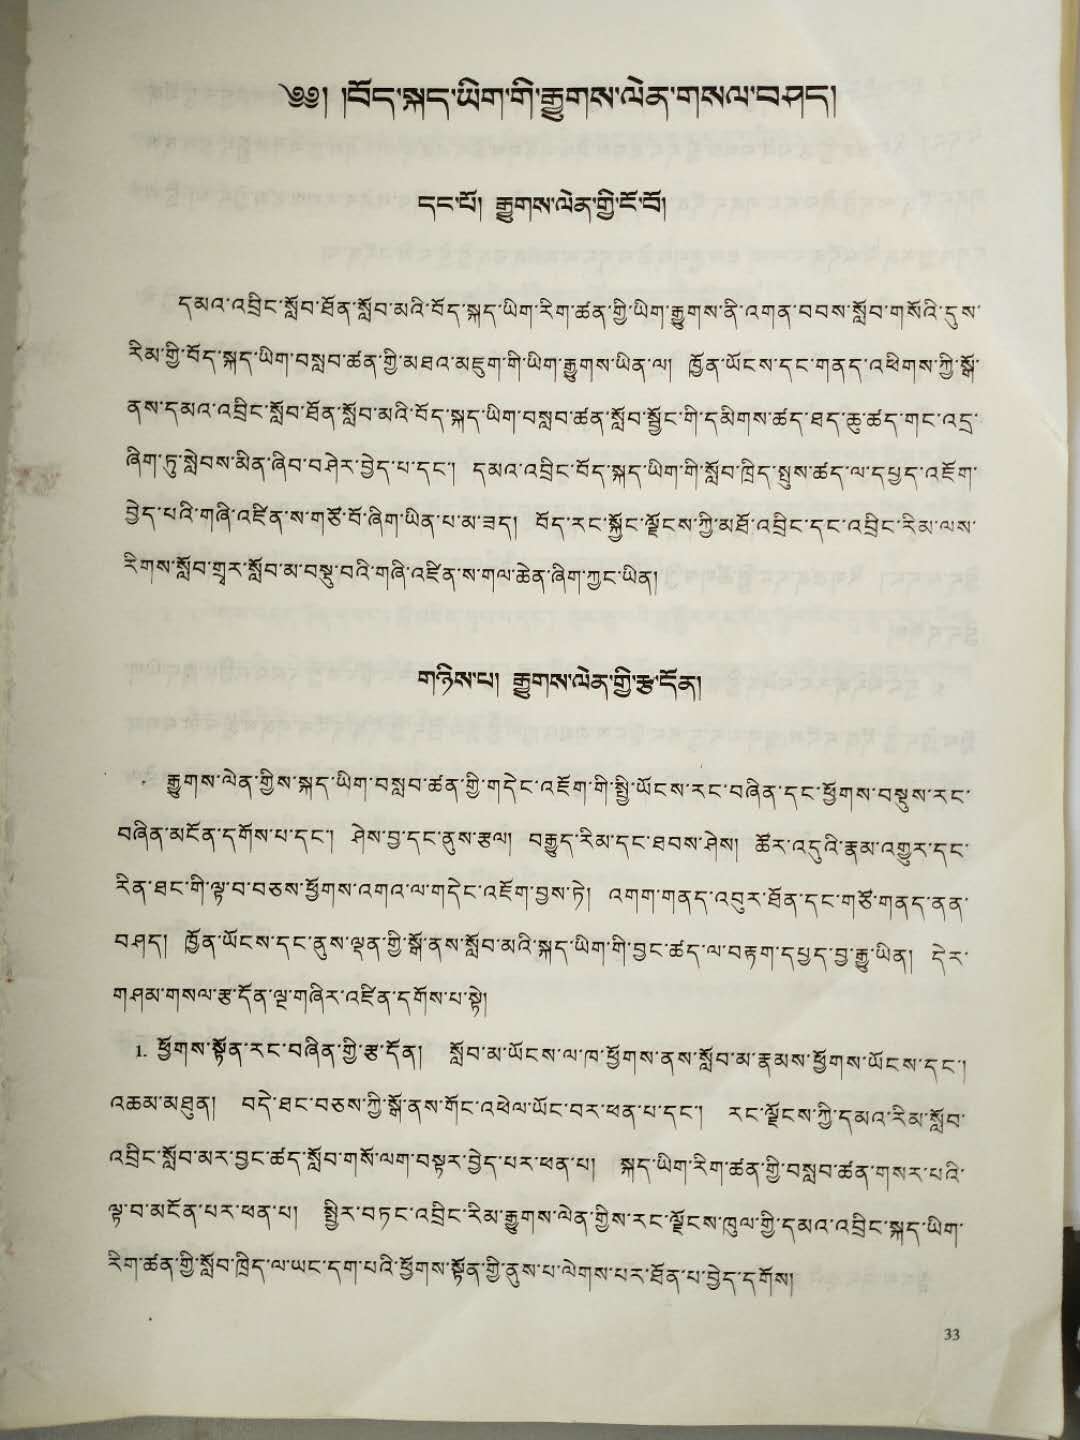 ༄༅། །བོད་སྐད་ཡིག་གི་རྒྱུགས་ལེན་གསལ་བཤད།
དང་པོ། རྒྱུགས་ལེན་གྱི་ངོ་བོ།
དམའ་འབྲིང་སློབ་ཐོན་སློབ་མའི་བོད་སྐད་ཡིག་རིག་ཚན་གྱི་ཡིག་རྒྱུགས་ནི་འགན་བབས་སློབ་གསོའི་དུས་
རིམ་གྱི་བོད་སྐད་ཡིག་བསླབ་ཚན་གྱི་མཐའ་མཇུག་གི་ཡིག་རྒྱུགས་ཡིན་ལ། ཁྱོན་ཡོངས་དང་གནད་འཕིགས་ཀྱི་སྒོ་
ནས་དམའ་འབྲིང་སློབ་ཐོན་སློབ་མའི་བོད་སྐད་ཡིག་བསླབ་ཚན་སློབ་སྦྱོང་གི་དམིགས་ཚད་ཐད་ཆུ་ཚད་གང་འདྲ་
ཞིག་ཏུ་སླེབས་མིན་ཞིབ་བཤེར་བྱེད་པ་དང་། དམའ་འབྲིང་བོད་སྐད་ཡིག་གི་སློབ་ཁྲིད་སྤུས་ཚད་ལ་དཔྱད་འཇོག་
བྱེད་པའི་གཞི་འཛིན་ས་གཙོ་བོ་ཞིག་ཡིན་པ་མ་ཟད། བོད་རང་སྐྱོང་ལྗོངས་ཀྱི་མཐོ་འབྲིང་དང་འབྲིང་རིམ་ལས་
རིགས་སློབ་གྲྭར་སློབ་མ་བསྡུ་བའི་གཞི་འཛིན་ས་གལ་ཆེན་ཞིག་ཀྱང་ཡིན།
གཉིས་པ། རྒྱུགས་ལེན་གྱི་རྩ་དོན།
རྒྱུགས་ལེན་གྱིས་སྐད་ཡིག་བསླབ་ཚན་གྱི་གདེང་འཇོག་གི་སྤྱི་ཡོངས་རང་བཞིན་དང་ཕྱོགས་བསྡུས་རང་
བཞིན་མངོན་དགོས་པ་དང་། ཤེས་བྱ་དང་ནུས་རྩལ། བརྒྱུད་རིམ་དང་ཐབས་ཤེས། ཚོར་འདུའི་རྣམ་འགྱུར་དང་
རིན་ཐང་གི་ལྟ་བ་བཅས་ཕྱོགས་འགའ་ལ་གདེང་འཇོག་བྱས་ཏེ། འགག་གནད་འབུར་ཐོན་དང་གཙོ་གནད་ནན་
བཤད། ཁྱོན་ཡོངས་དང་ནུས་ལྡན་གྱི་སྒོ་ནས་སློབ་མའི་སྐད་ཡིག་གི་བྱང་ཚད་ལ་བརྟག་དཔྱད་བྱ་རྒྱུ་ཡིན། དེར་
གཤམ་གསལ་རྩ་དོན་ལྔ་གཞིར་འཛིན་དགོས་པ་སྟེ།
1. ཕྱོགས་སྟོན་རང་བཞིན་གྱི་རྩ་དོན། སློབ་མ་ཡོངས་ལ་ཁ་ཕྱོགས་ནས་སློབ་མ་རྣམས་ཕྱོགས་ཡོངས་དང་།
འཆམ་མཐུན། བདེ་ཐང་བཅས་ཀྱི་སྒོ་ནས་གོང་འཕེལ་ཡོང་བར་ཕན་པ་དང་། རང་ལྗོངས་ཀྱི་དམའ་རིམ་སློབ་
འབྲིང་སློབ་མར་བྱང་ཚད་སློབ་གསོ་ལག་བསྟར་བྱེད་པར་ཕན་པ། སྐད་ཡིག་རིག་ཚན་གྱི་བསླབ་ཚན་གསར་པའི་
ལྟ་བ་མངོན་པར་ཕན་པ། སྤྱིར་བཏང་འབྲིང་རིམ་རྒྱུགས་ལེན་གྱིས་རང་ལྗོངས་ཁུལ་གྱི་དམའ་འབྲིང་སྐད་ཡིག་
རིག་ཚན་གྱི་སློབ་ཁྲིད་ལ་ཡང་དག་པའི་ཕྱོགས་སྟོན་གྱི་ནུས་པ་ལེགས་པར་ཐོན་པ་བྱེད་དགོས།
33